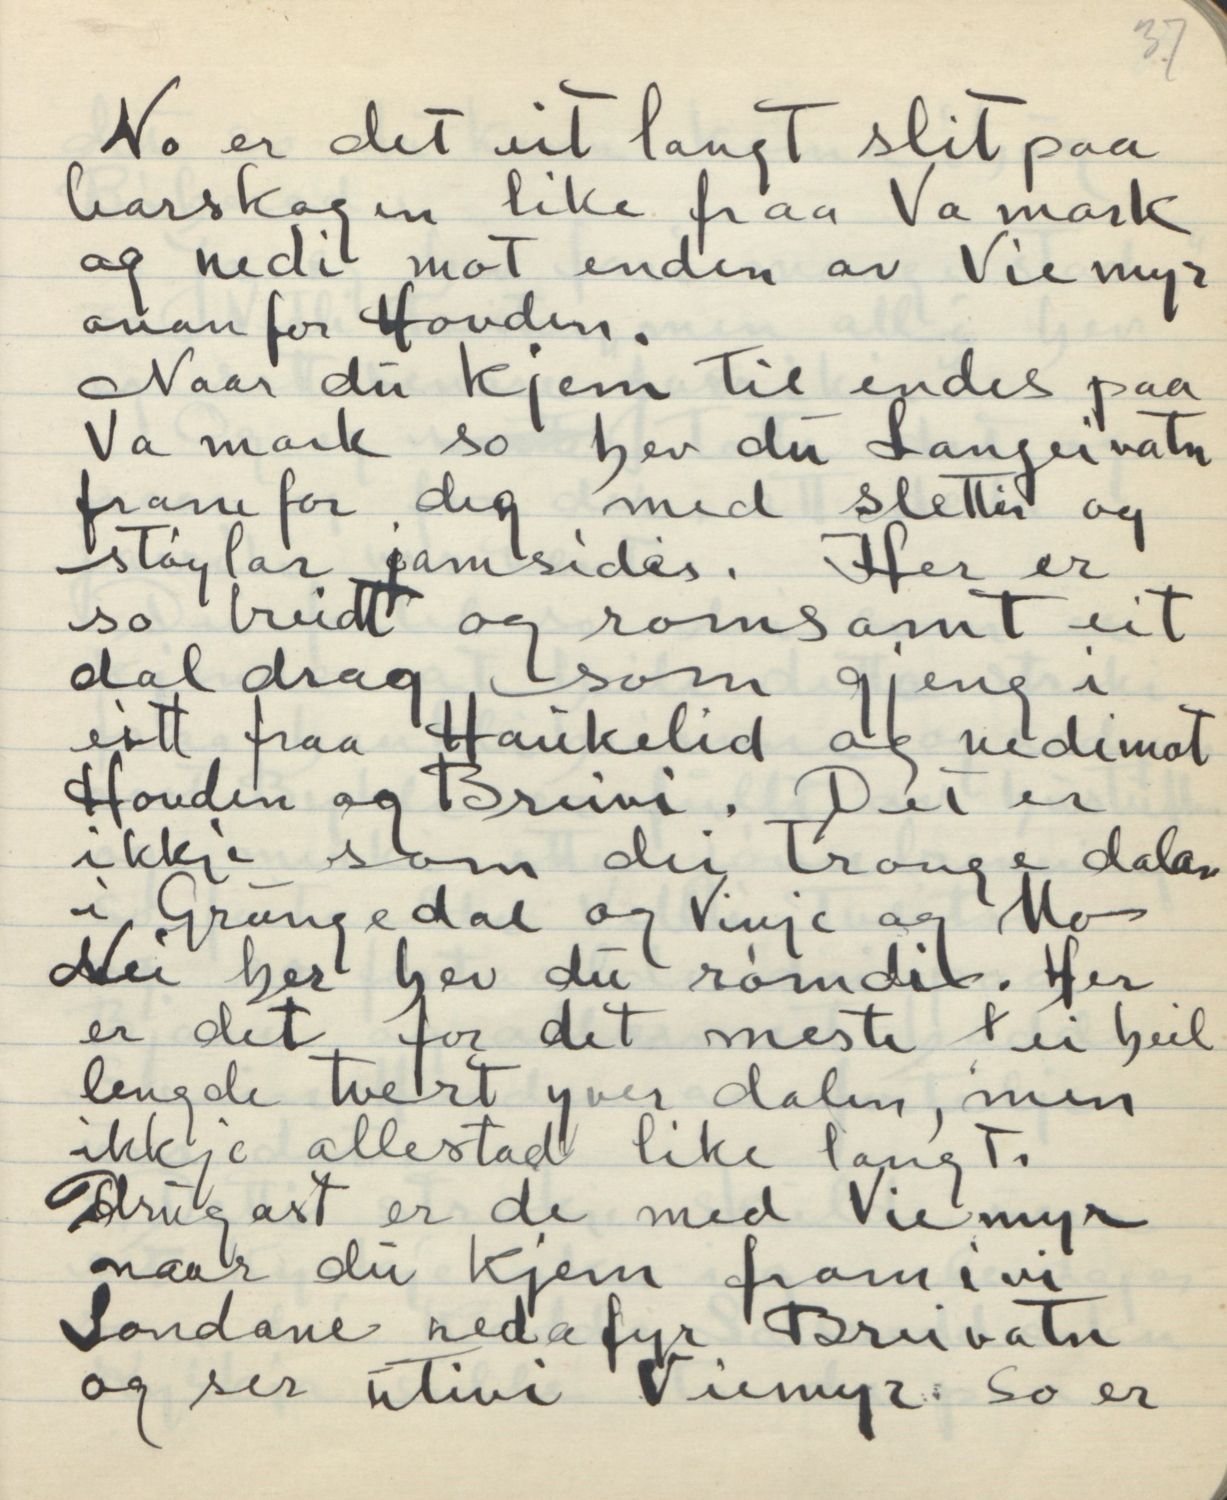 37
No er det eit langt slit paa
barskogen like fraa Vamark
og nedi mot enden av Viemyr
ovanfor Hovden.
Naar du kjem til endes paa
Vamark so hev du Langeivatn
framfor deg med slettir og
støylar jamsides. Her er
so breidt og romsamt eit
daldrag som gjeng i
eitt fraa Haukelid og nedimot
Hovden og Breivi. Det er
ikkje som dei tronge dalar
i Grungedal og Vinje og Mo
Nei her hev du romdil. Her
er det for det meste ei heil
lengde tvert yver dalen, men
ikkje allestad like langt.
Drugast er de med Viemyr
naar du kjem fram ivi
Sondane nedafyr Breivatn
og ser utivi Viemyr. So er